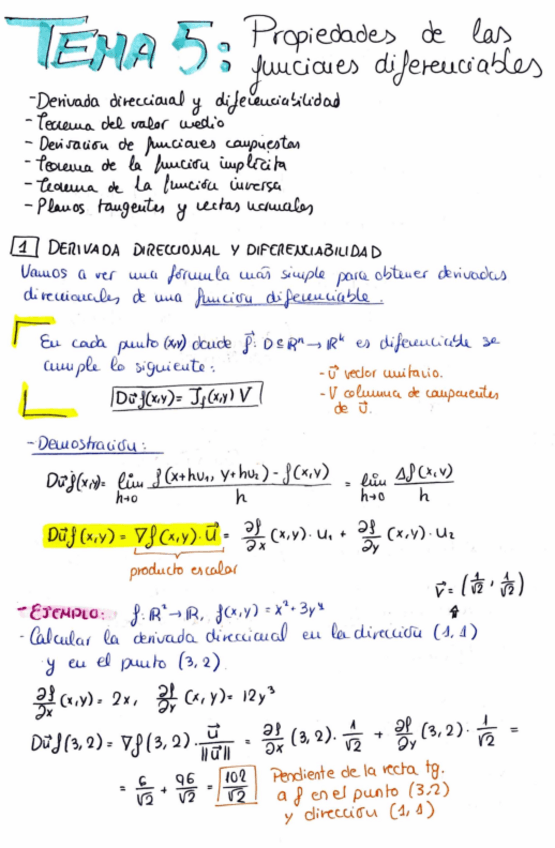 TEMA 5: Propiedades de las
funciones diferenciables
- Derivada direccional y diferenciabilidad
- Teorema del valor medio
- Derivación de funciones compuestas
- Teorema de la función implícita
- Teorema de la función inversa
- Planos tangentes y rectas normales
1 DERIVADA DIRECCIONAL Y DIFERENCIABILIDAD
Vamos a ver una fórmula más simple para obtener derivadas
direccionales de una función diferenciable.
En cada punto (x,y) donde f⃗: D⊆ℝⁿ→ℝᵏ es diferenciable se
cumple lo siguiente:
- u⃗ vector unitario.
- V columna de componentes
de u⃗.
Du⃗f(x,y) = J_f(x,y) V
- Demostración:
Du⃗f(x,y) = lim h→0 f(x+hu₁, y+hu₂) - f(x,y) / h = lim h→0 Δf(x,y) / h
Du⃗f(x,y) = ∇f(x,y)·u⃗ = ∂f/∂x (x,y)·u₁ + ∂f/∂y (x,y)·u₂
producto escalar
v⃗ = (1/√2, 1/√2)
- EJEMPLO: f: ℝ²→ℝ, f(x,y) = x² + 3y⁴
- Calcular la derivada direccional en la dirección (1,1)
y en el punto (3,2)
∂f/∂x (x,y) = 2x, ∂f/∂y (x,y) = 12y³
Du⃗f(3,2) = ∇f(3,2)·u⃗/||u⃗|| = ∂f/∂x (3,2)·1/√2 + ∂f/∂y (3,2)·1/√2 =
= 6/√2 + 96/√2 = 102/√2
Pendiente de la recta tg.
a f en el punto (3,2)
y dirección (1,1)